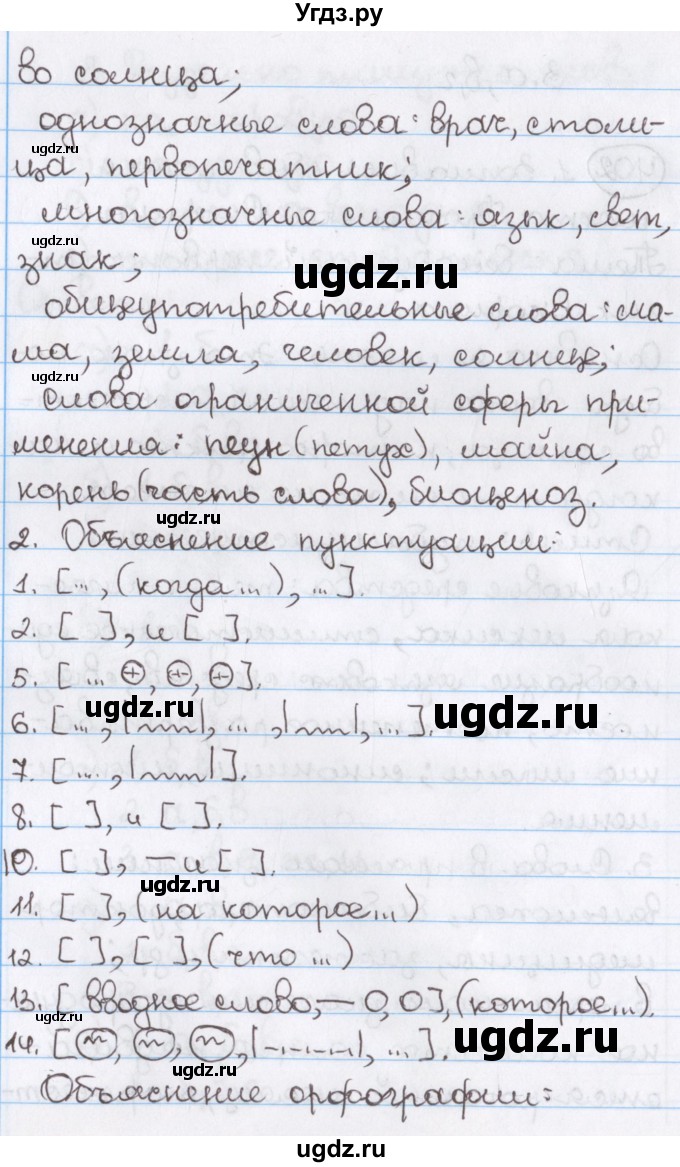 Угдз.ру
во солнца;
однозначные слова: врач, столи-
ца, первопечатник;
многозначные слова: язык, свет,
знак;
общеупотребительные слова: ма-
ма, земля, человек, солнце;
слова ограниченной сферы при-
менения: пеун (петух), майна,
корень (часть слова), биоценоз.
2. Объяснение пунктуации:
1. [..., (когда...), ...].
2. [ ], и [ ].
5. [... ⊕, ⊖, ⊖].
6. [..., |~~|, ..., |~~|, ...].
7. [..., |~~|].
8. [ ], и [ ].
10. [ ], и [ ].
11. [ ], (на которое...)
12. [ ], [ ], (что ...)
13. [вводное слово, — О, О], (которое...).
14. [~, ~, ~, |-.-.-.-|, ...].
Объяснение орфографии:
ugdz.ru
ugdz.ru
ugdz.ru
ugdz.ru
ugdz.ru
ugdz.ru
ugdz.ru
ugdz.ru
ugdz.ru
ugdz.ru
ugdz.ru
ugdz.ru
ugdz.ru